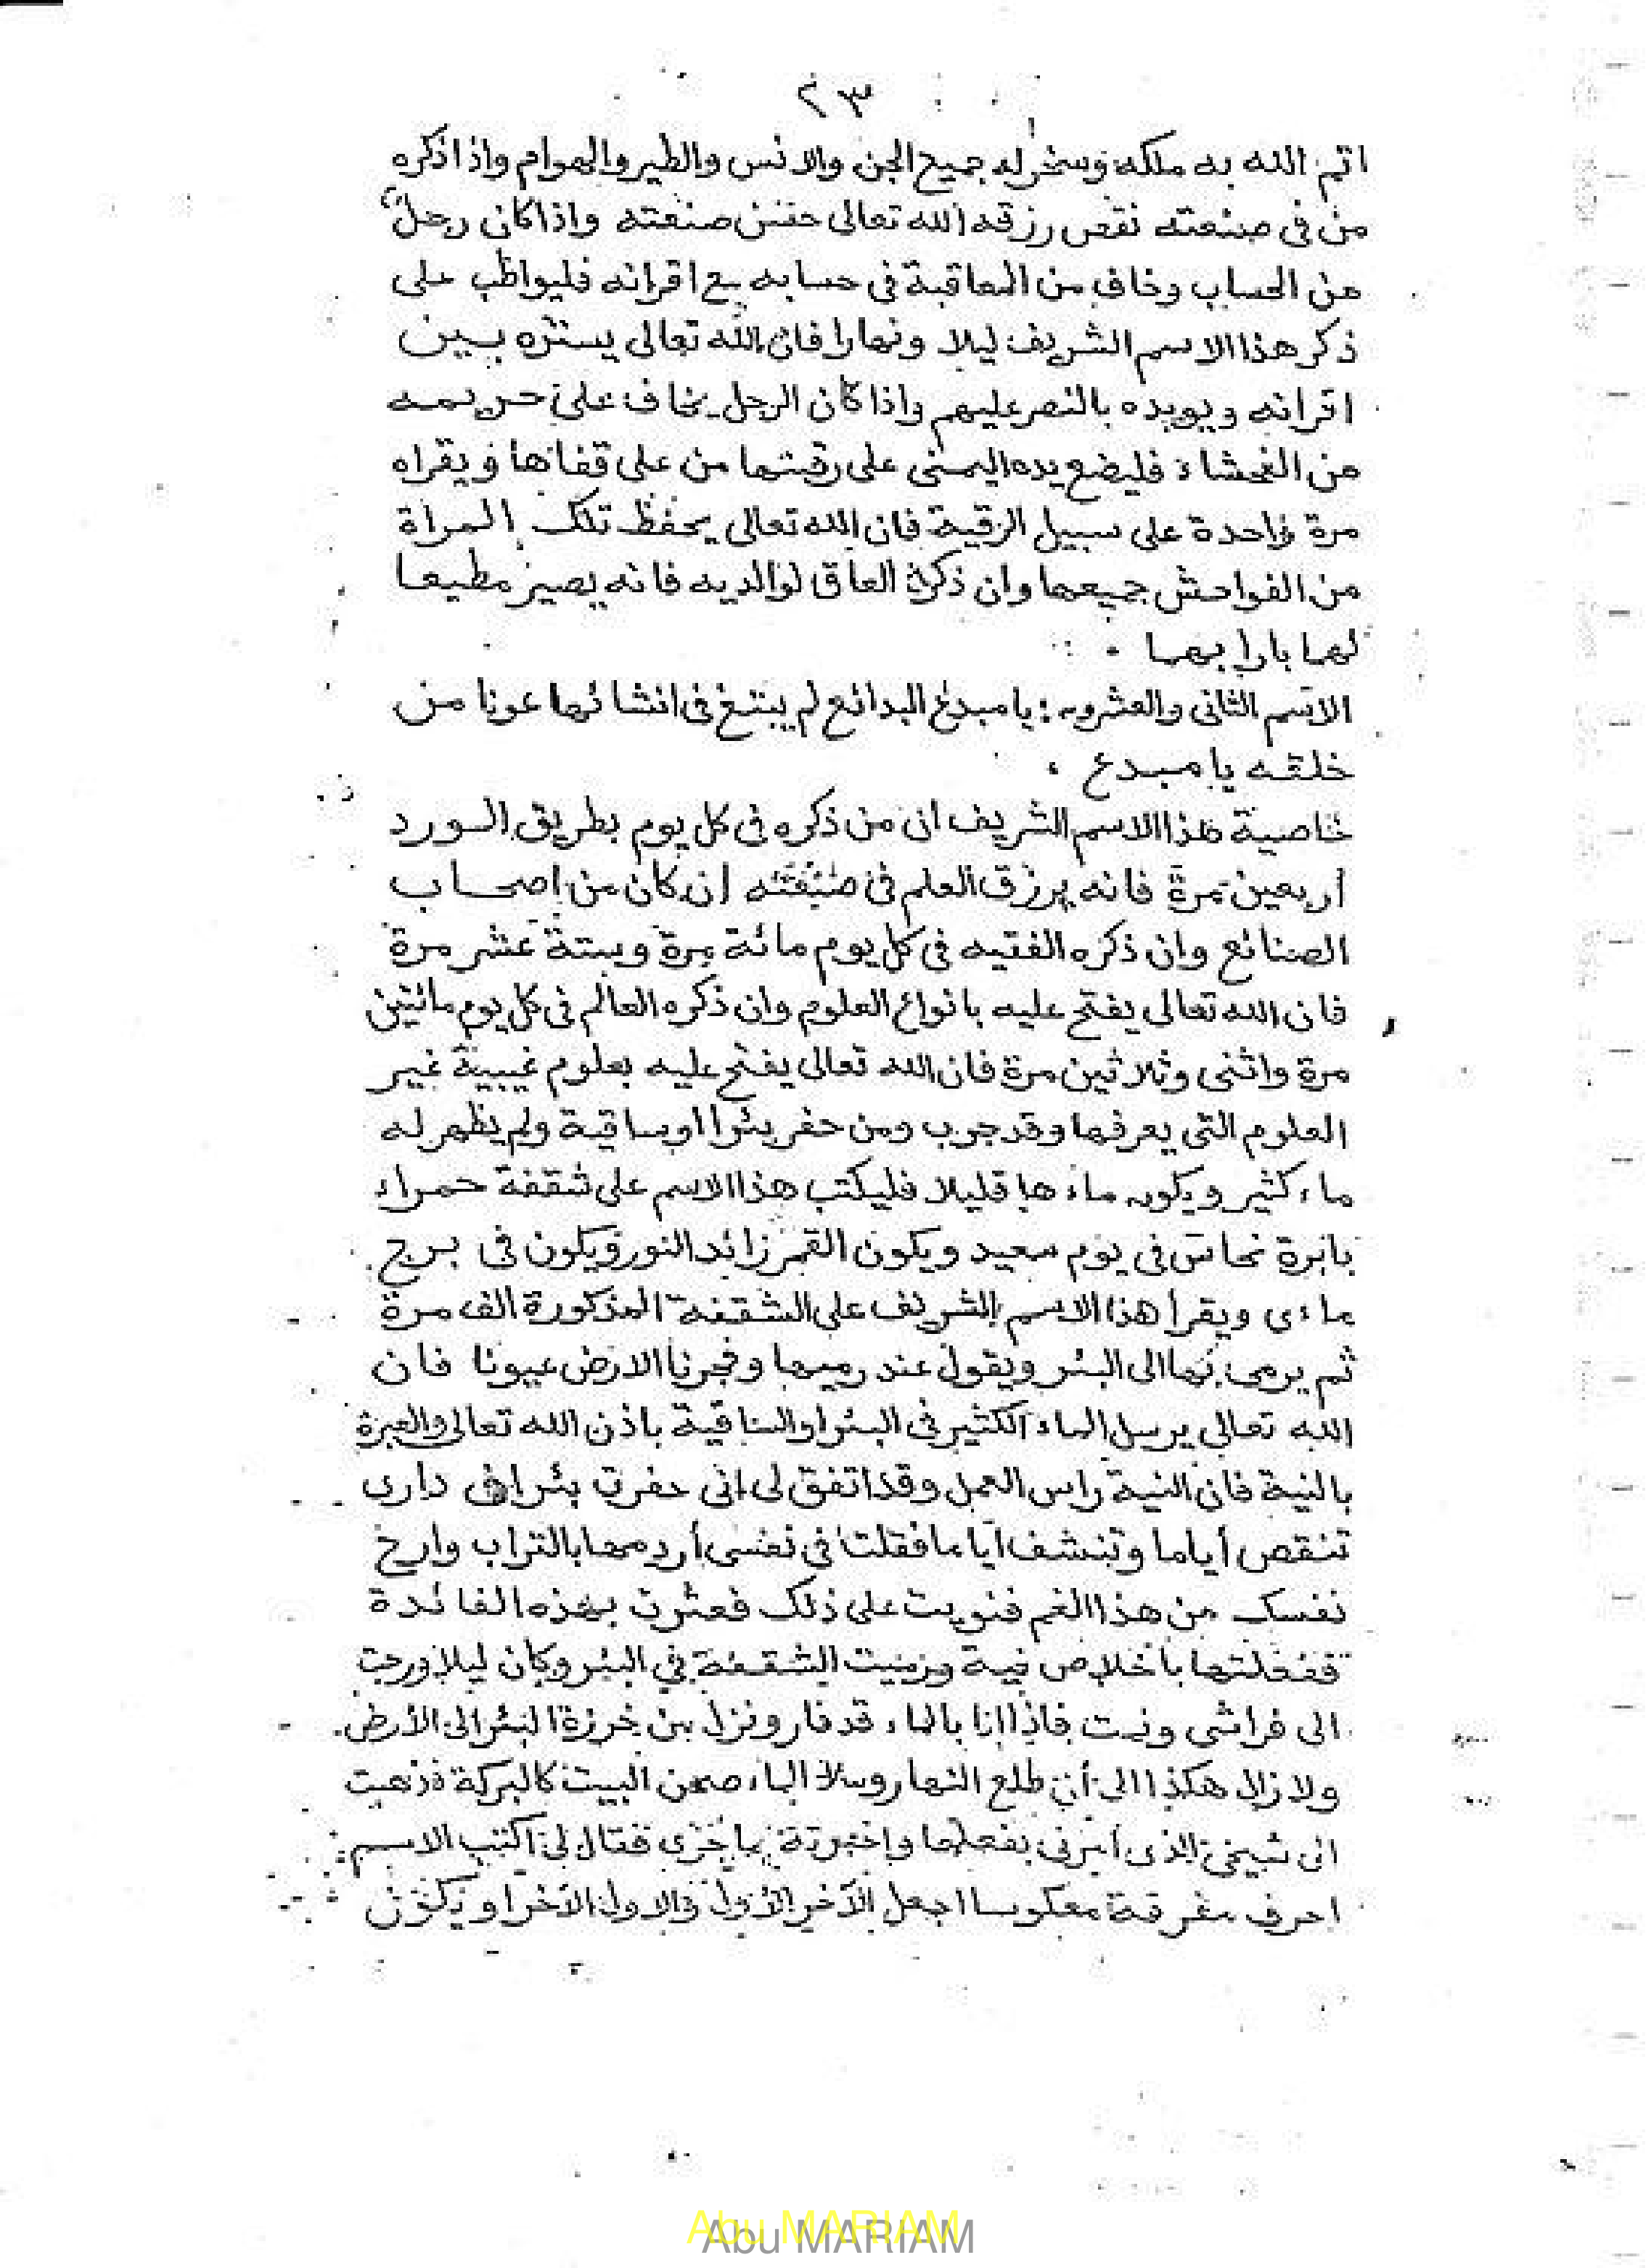 ٢٣
اتم الله به ملكه وسخر له جميع الجن والانس والطير والهوام واذا ذكره
من فى صنعته نقص رزقه الله تعالى حسن صنعته واذا كان رجل
من الحساب وخاف من المعاقبة فى حسابه مع اقرانه فليواظب على
ذكر هذا الاسم الشريف ليلا ونهارا فان الله تعالى يستره بين
اقرانه ويويده بالنصر عليهم واذا كان الرجل يخاف على حريمه
من الفحشاء فليضع يده اليمنى على رقبتها من على قفاها ويقراه
مرة واحدة على سبيل الرقية فان الله تعالى يحفظ تلك المراة
من الفواحش جميعها وان ذكره العاق لوالديه فانه يصير مطيعا
لهما بارا بهما .
الاسم الثانى والعشرون : يا مبدع البدائع لم يبتغ فى انشائها عونا من
خلقه يا مبدع .
خاصية هذا الاسم الشريف ان من ذكره فى كل يوم بطريق الورد
أربعين مرة فانه يرزق العلم فى صنعته ان كان من اصحاب
الصنائع وان ذكره الفتيه فى كل يوم مائة مرة وستة عشر مرة
فان الله تعالى يفتح عليه بانواع العلوم وان ذكره العالم فى كل يوم مائتين
مرة واثنى وثلاثين مرة فان الله تعالى يفتح عليه بعلوم غيبية غير
العلوم التى يعرفها وقد جرب ومن حفر بئرا او ساقية ولم يظهر له
ماء كثير ويكون ماءها قليلا فليكتب هذا الاسم على شقفة حمراء
بابرة نحاس فى يوم سعيد ويكون القمر زائد النور ويكون فى برج
ماءى ويقرأ هذا الاسم الشريف على الشقفة المذكورة الف مرة
ثم يرمى بها الى البئر ويقول عند رميها وفجرنا الارض عيونا فان
الله تعالى يرسل الماء الكثير فى البئر او الساقية باذن الله تعالى والعبرة
بالنية فان النية راس العمل وقد اتفق لى انى حفرت بئرا فى دارى
تنقص أياما وتنشف اياما فقلت فى نفسى أردمها بالتراب وارح
نفسك من هذا الغم فنويت على ذلك فعثرت بهذه الفائدة
ففعلتها باخلاص نية ورميت الشقفة فى البئر وكان ليلا ورجعت
الى فراشى ونمت فاذا انا بالماء قد فار ونزل من خرزة البئر الى الأرض
ولا زال هكذا الى أن طلع النهار وملا الماء صحن البيت كالبركة فذهبت
الى شيخى الذى أمرنى بفعلها واخبرته بما جرى فقال لى اكتب الاسم
احرف مفرقة معكوسا اجعل الآخر الأول والاول الآخرا ويكون
Abu MARIAM